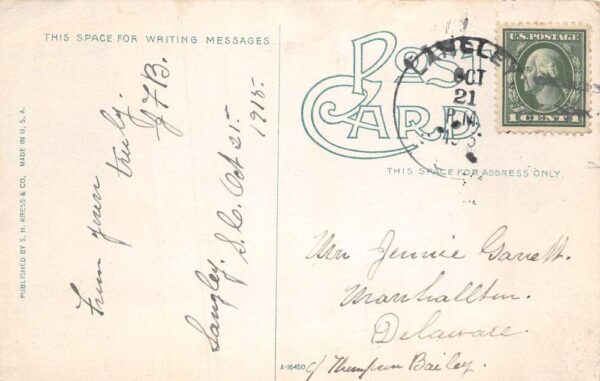 THIS SPACE FOR WRITING MESSAGES
POST
CARD
THIS SPACE FOR ADDRESS ONLY.
LANGLEY
OCT
21
P.M.
U.S. POSTAGE
1 CENT 1
PUBLISHED BY S. H. KRESS & CO, MADE IN U. S. A.
Langley. S.C. Oct 21 - 1915 -
From yours
truly.
J F B.
Mrs Jennie Garrett.
Marshallton.
Delaware.
c/ Thompson Bailey.
A-16450